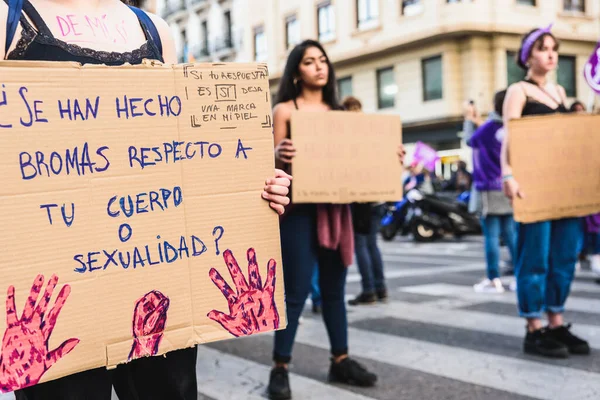 DE MI
¿SE HAN HECHO
BROMAS RESPECTO A
TU CUERPO
O
SEXUALIDAD?
SI TU RESPUESTA
ES SI DEJA
UNA MARCA
EN MI PIEL